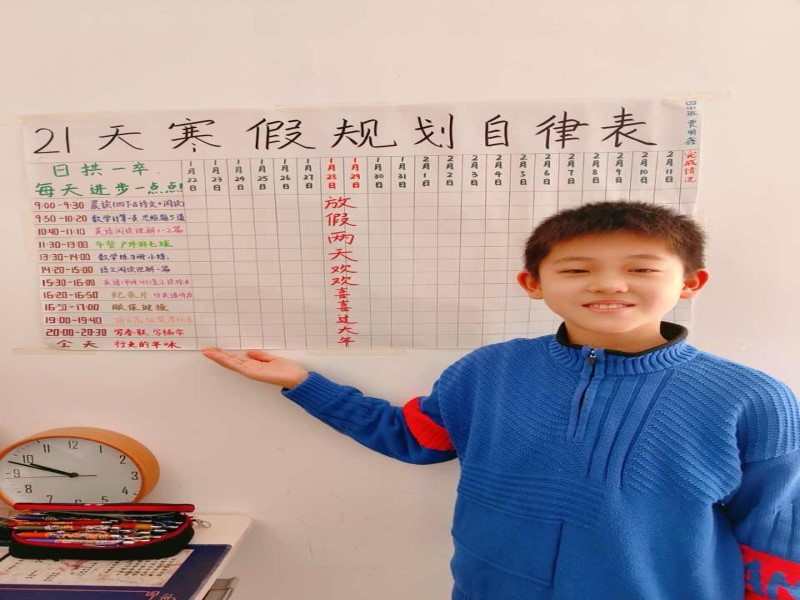 21天寒假规划自律表
四
完成情况
日拱一卒.
每天进步一点点!
1月22日 1月23日 1月24日 1月25日 1月26日 1月27日 1月28日 1月29日 1月30日 1月31日 2月1日 2月2日 2月3日 2月4日 2月5日 2月6日 2月7日 2月8日 2月9日 2月10日 2月11日
9:00-9:30 晨读(四下语文+阅读)
9:50-10:20 数学计算一页 思维题5道
10:40-11:10 英语阅读理解1-2篇
11:30-13:00 午餐 户外羽毛球
13:30-14:00 数学练习册
14:20-15:00 语文阅读理解一篇
15:30-16:00 英语
16:20-16:50 纪录片 听英语听力
16:50-17:00 眼保健操
19:00-19:40
20:00-20:30 写春联,写福字
全天 行走的年味
放假两天欢欢喜喜过大年
12
1
2
3
4
5
7
8
9
10
11